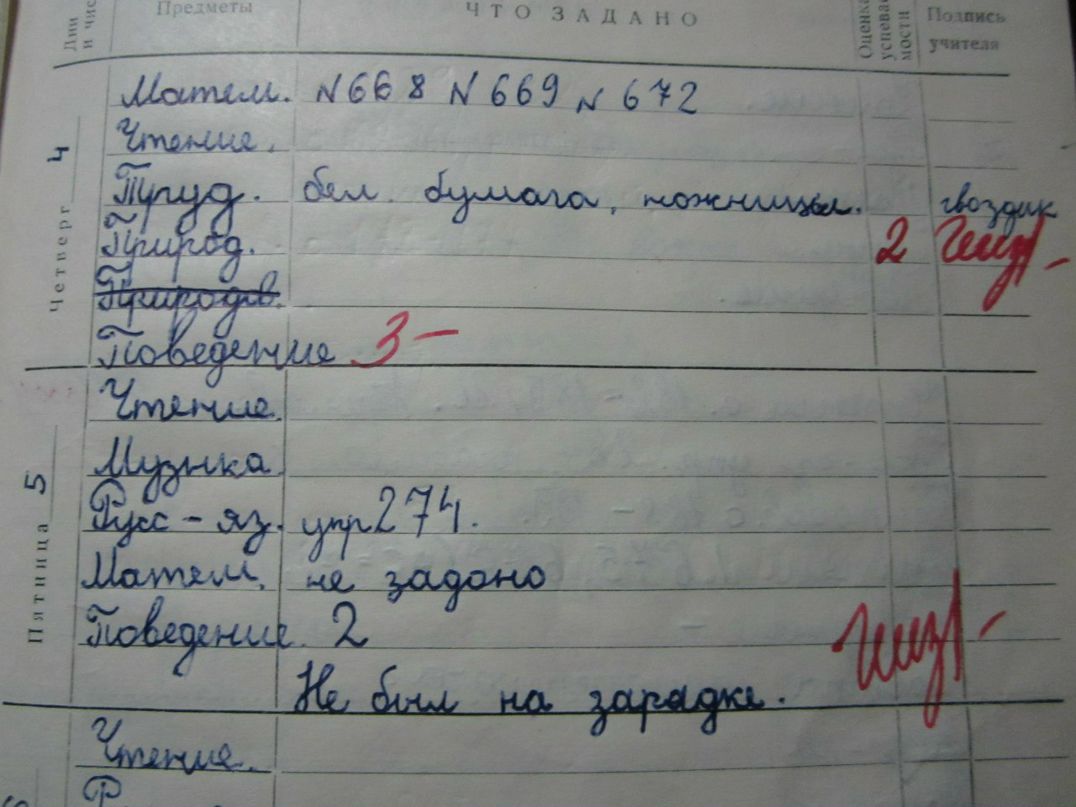 Дни и чис
Предметы
ЧТО ЗАДАНО
Оценка успевае мости
Подпись учителя
Четверг 4
Матем. N668 N669 N672
Чтение.
Труд. бел. бумага, ножницы. гвоздик
Природ. 2
Природов.
Поведение 3-
Пятница 5
Чтение.
Музыка
Русс-яз. упр274.
Матем. не задоно
Поведение. 2
Не был на зарадке.
Чтение.